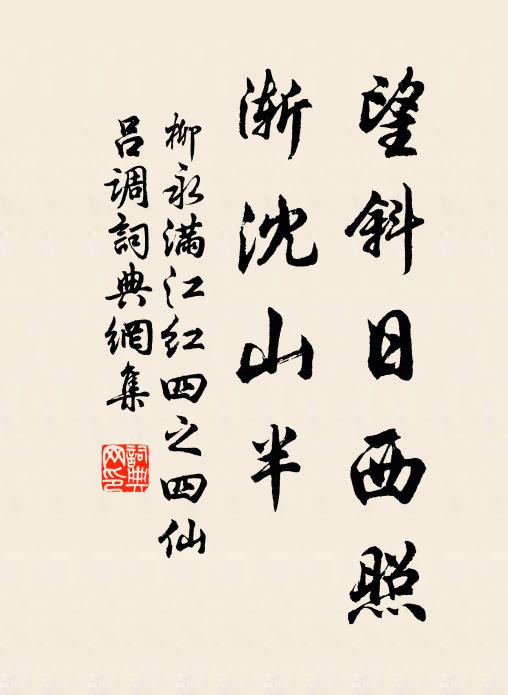 望斜日西照
渐沈山半
柳永满江红四之四仙
吕调词典網集
詞典
网印